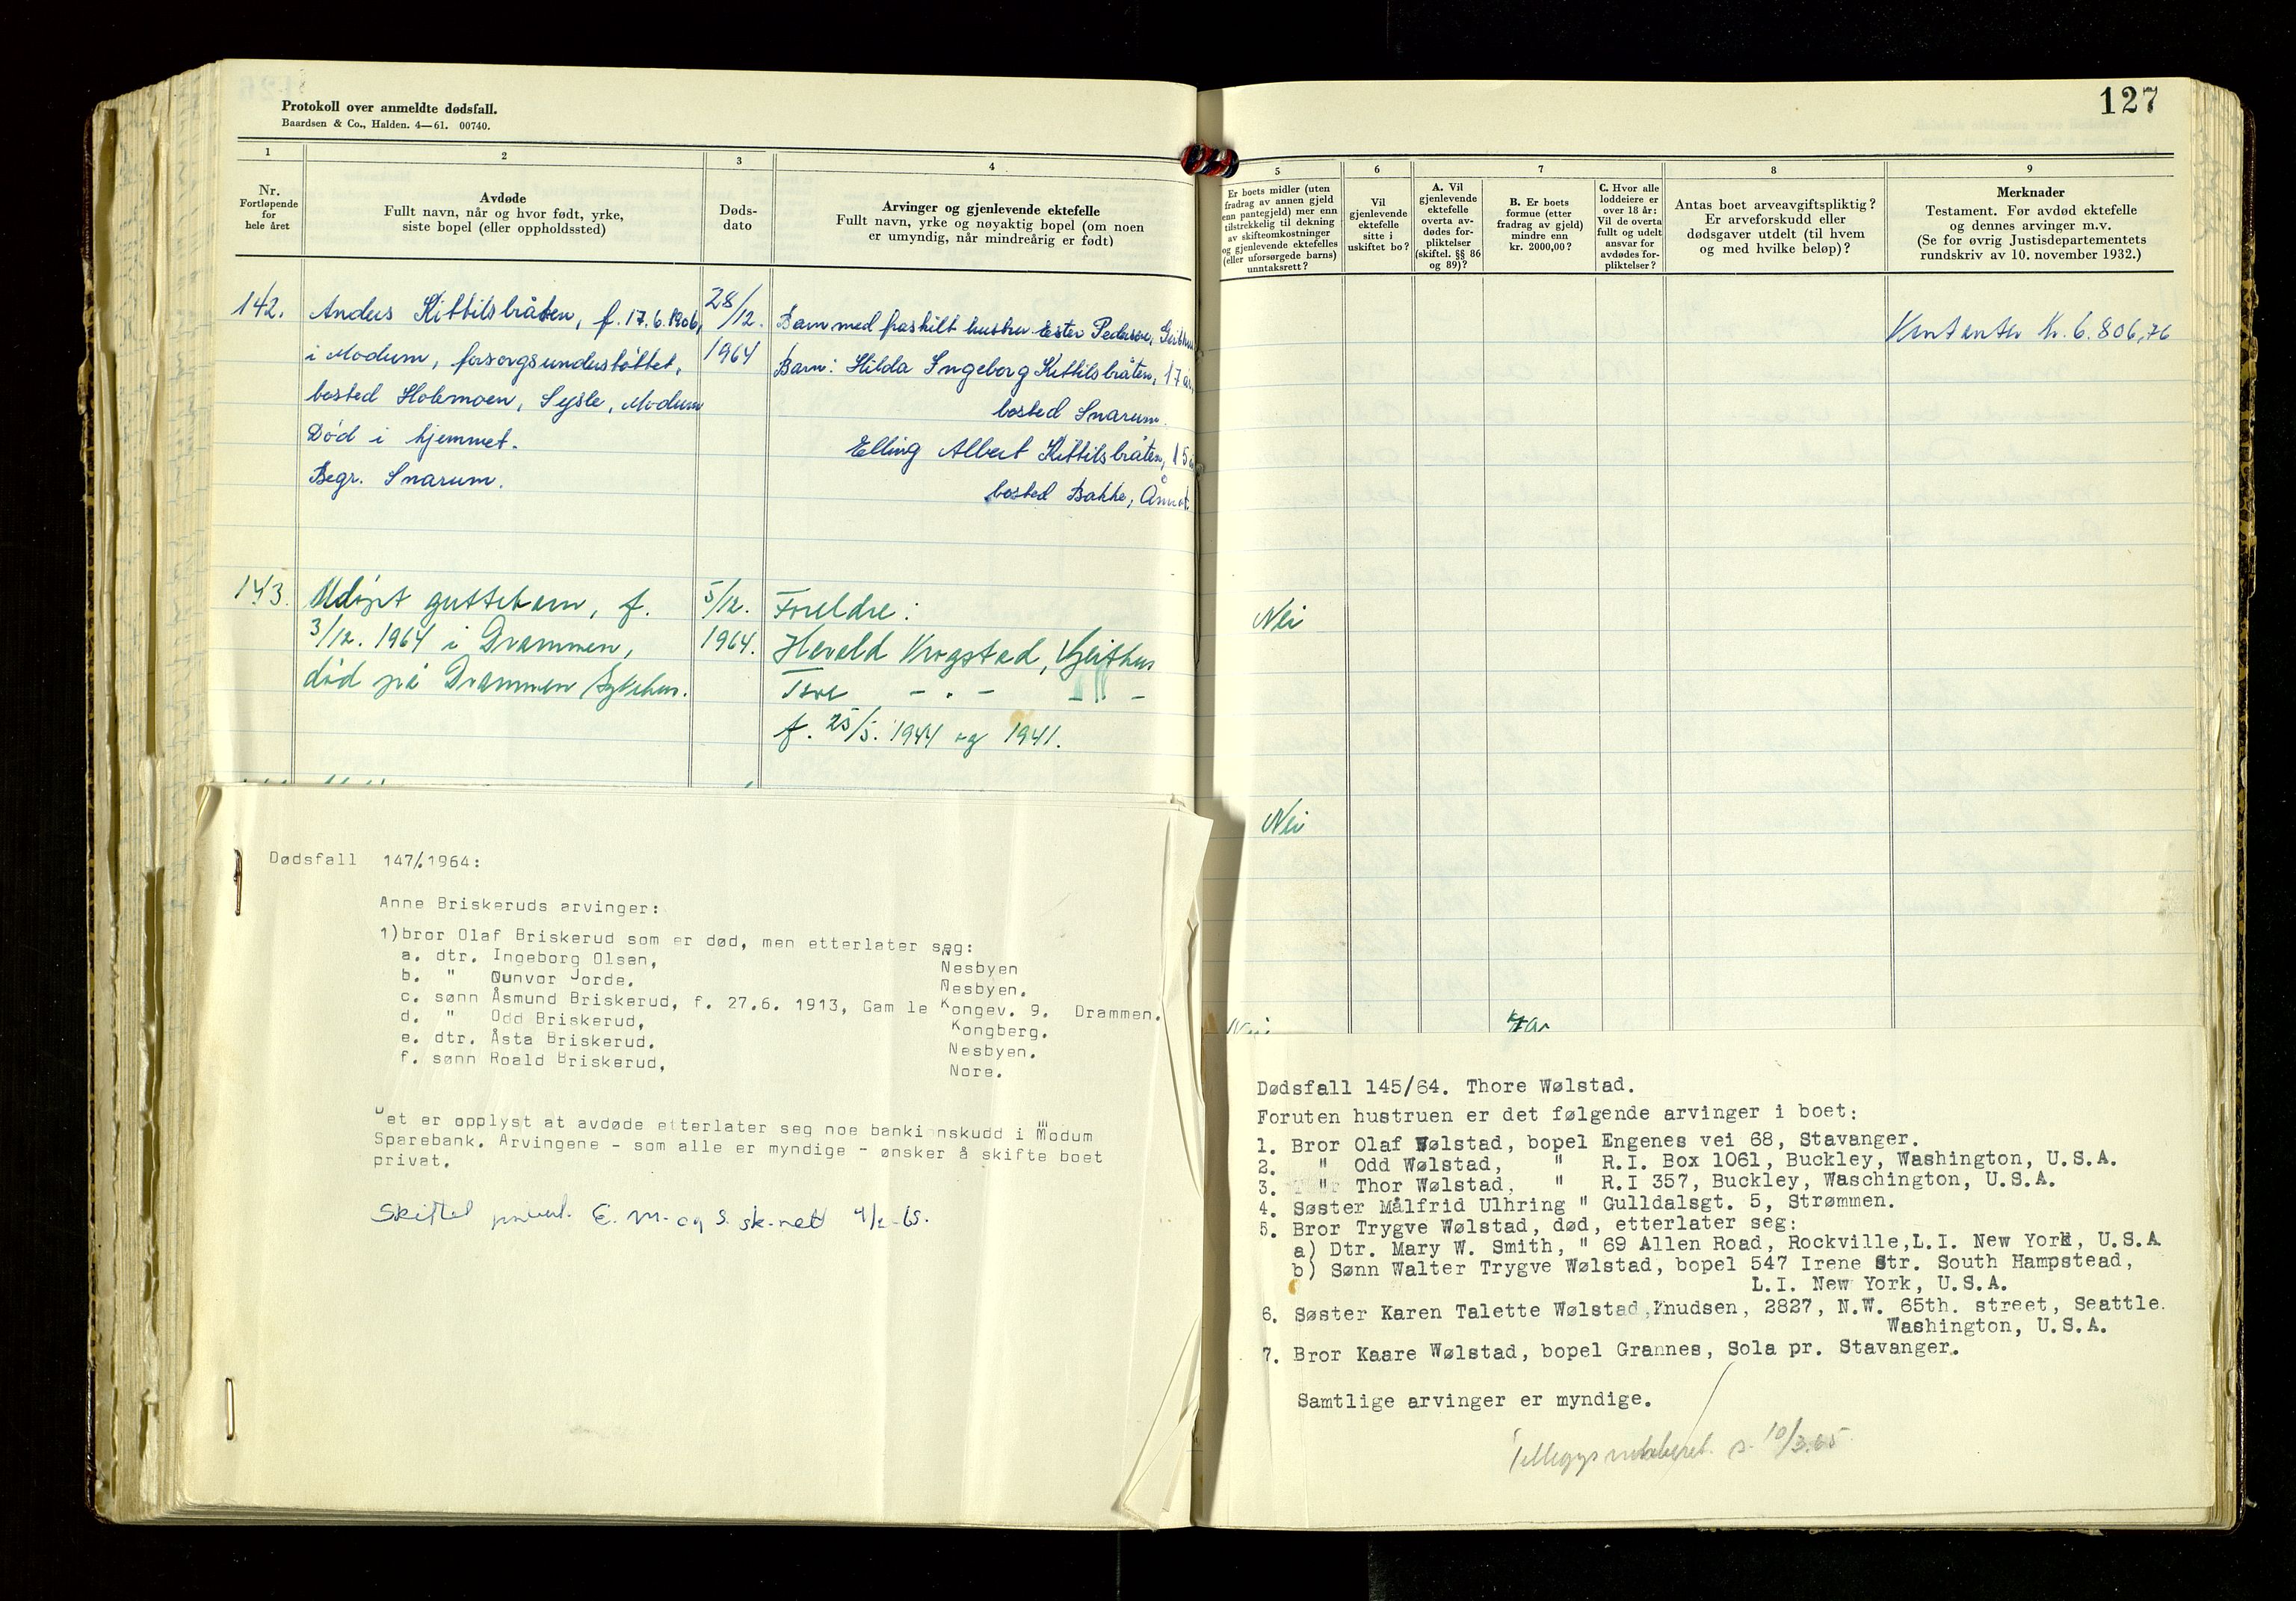 Protokoll over anmeldte dødsfall.
Baardsen & Co., Halden. 4—61. 00740.
127
1
2
3
4
5
6
7
8
9
Nr.
Fortløpende
for
hele året
Avdøde
Fullt navn, når og hvor født, yrke,
siste bopel (eller oppholdssted)
Døds-
dato
Arvinger og gjenlevende ektefelle
Fullt navn, yrke og nøyaktig bopel (om noen
er umyndig, når mindreårig er født)
Er boets midler (uten
fradrag av annen gjeld
enn pantegjeld) mer enn
tilstrekkelig til dekning
av skifteomkostninger
og gjenlevende ektefelles
(eller uforsørgede barns)
unntaksrett?
Vil
gjenlevende
ektefelle
sitte i
uskiftet bo?
A. Vil
gjenlevende
ektefelle
overta av-
dødes for-
pliktelser
(skiftel. §§ 86
og 89)?
B. Er boets
formue (etter
fradrag av gjeld)
mindre enn
kr. 2000,00?
C. Hvor alle
loddeiere er
over 18 år:
Vil de overta
fullt og udelt
ansvar for
avdødes for-
pliktelser?
Antas boet arveavgiftspliktig?
Er arveforskudd eller
dødsgaver utdelt (til hvem
og med hvilke beløp)?
Merknader
Testament. Før avdød ektefelle
og dennes arvinger m.v.
(Se for øvrig Justisdepartementets
rundskriv av 10. november 1932.)
142.
Anders Kittilsbråten, f. 17.6.1906,
i Modum, forsorgsunderstøttet,
bosted Holemoen, Sysle, Modum
Død i hjemmet.
Begr. Snarum.
28/12.
1964
Barn med fraskilt hustru Ester Pedersen, Geithus
Barn: Hilda Ingeborg Kittilsbråten, 17 år,
bosted Snarum.
Elling Albert Kittilsbråten, 15
bosted Bakke, Åmot
Kontanter kr. 6.806,76
143.
Udøpt guttebarn, f.
3/12. 1964 i Drammen,
død på Drammen Sykehus.
5/12.
1964.
Foreldre:
Harald Krogstad, Geithus
Tove - " - - " -
f. 25/5. 1944 og 1941.
Nei
Nei
Dødsfall 147/1964:
Anne Briskeruds arvinger:
1)bror Olaf Briskerud som er død, men etterlater seg:
a. dtr. Ingeborg Olsen, Nesbyen
b. " Gunvor Jorde. Nesbyen.
c. sønn Åsmund Briskerud, f. 27.6. 1913, Gam le Kongev. 9. Drammen.
d. " Odd Briskerud, Kongberg.
e. dtr. Åsta Briskerud. Nesbyen.
f. sønn Roald Briskerud, Nore.
Det er opplyst at avdøde etterlater seg noe bankinnskudd i Modum
Sparebank. Arvingene - som alle er myndige - ønsker å skifte boet
privat.
Skiftet privat. E. m. og S. sk.rett 4/2-65.
Dødsfall 145/64. Thore Wølstad.
Foruten hustruen er det følgende arvinger i boet:
1. Bror Olaf Wølstad, bopel Engenes vei 68, Stavanger.
2. " Odd Wølstad, " R.I. Box 1061, Buckley, Washington, U.S.A.
3. " Thor Wølstad, " R.I 357, Buckley, Waschington, U.S.A.
4. Søster Målfrid Ulhring " Gulldalsgt. 5, Strømmen.
5. Bror Trygve Wølstad, død, etterlater seg:
a) Dtr. Mary W. Smith, " 69 Allen Road, Rockville,L.I. New York, U.S.A
b) Sønn Walter Trygve Wølstad, bopel 547 Irene Str. South Hampstead,
L.I. New York, U.S.A.
6. Søster Karen Talette Wølstad,Knudsen, 2827, N.W. 65th. street, Seattle.
Washington, U.S.A.
7. Bror Kaare Wølstad, bopel Grannes, Sola pr. Stavanger.
Samtlige arvinger er myndige.
10/3.65